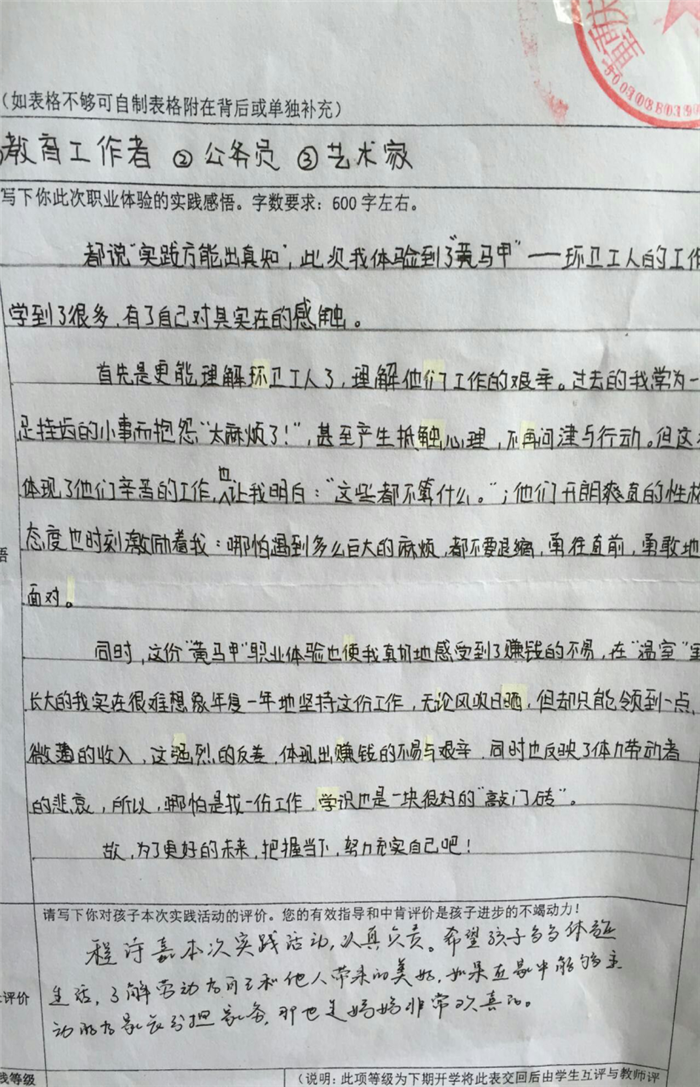 重庆
5003088019
（如表格不够可自制表格附在背后或单独补充）
教育工作者 ② 公务员 ③ 艺术家
写下你此次职业体验的实践感悟。字数要求：600字左右。
都说“实践方能出真知”，此次我体验到了“黄马甲”——环卫工人的工作
学到了很多，有了自己对其实在的感触。
首先是更能理解环卫工人了，理解他们工作的艰辛。过去的我常为一
足挂齿的小事而抱怨“太麻烦了！”，甚至产生抵触心理，不再问津与行动。但这
体现了他们辛苦的工作，也让我明白：“这些都不算什么。”；他们开朗爽直的性格
态度也时刻激励着我：哪怕遇到多么巨大的麻烦，都不要退缩，勇往直前，勇敢地
悟
面对。
同时，这份“黄马甲”职业体验也使我真切地感受到了赚钱的不易，在“温室”里
长大的我实在很难想象年复一年地坚持这份工作，无论风吹日晒，但却只能领到一点
微薄的收入，这强烈的反差，体现出赚钱的不易与艰辛，同时也反映了体力劳动者
的悲哀，所以，哪怕是找一份工作，学识也是一块很好的“敲门砖”。
故，为了更好的未来，把握当下，努力充实自己吧！
请写下你对孩子本次实践活动的评价。您的有效指导和中肯评价是孩子进步的不竭动力！
程诗嘉本次实践活动，认真负责。希望孩子多多体验
评价
生活，了解劳动为自己和他人带来的美好，如果在家中能够主
动的为家长分担家务，那也是妈妈非常欢喜的。
践等级
（说明：此项等级为下期开学将此表交回后由学生互评与教师评